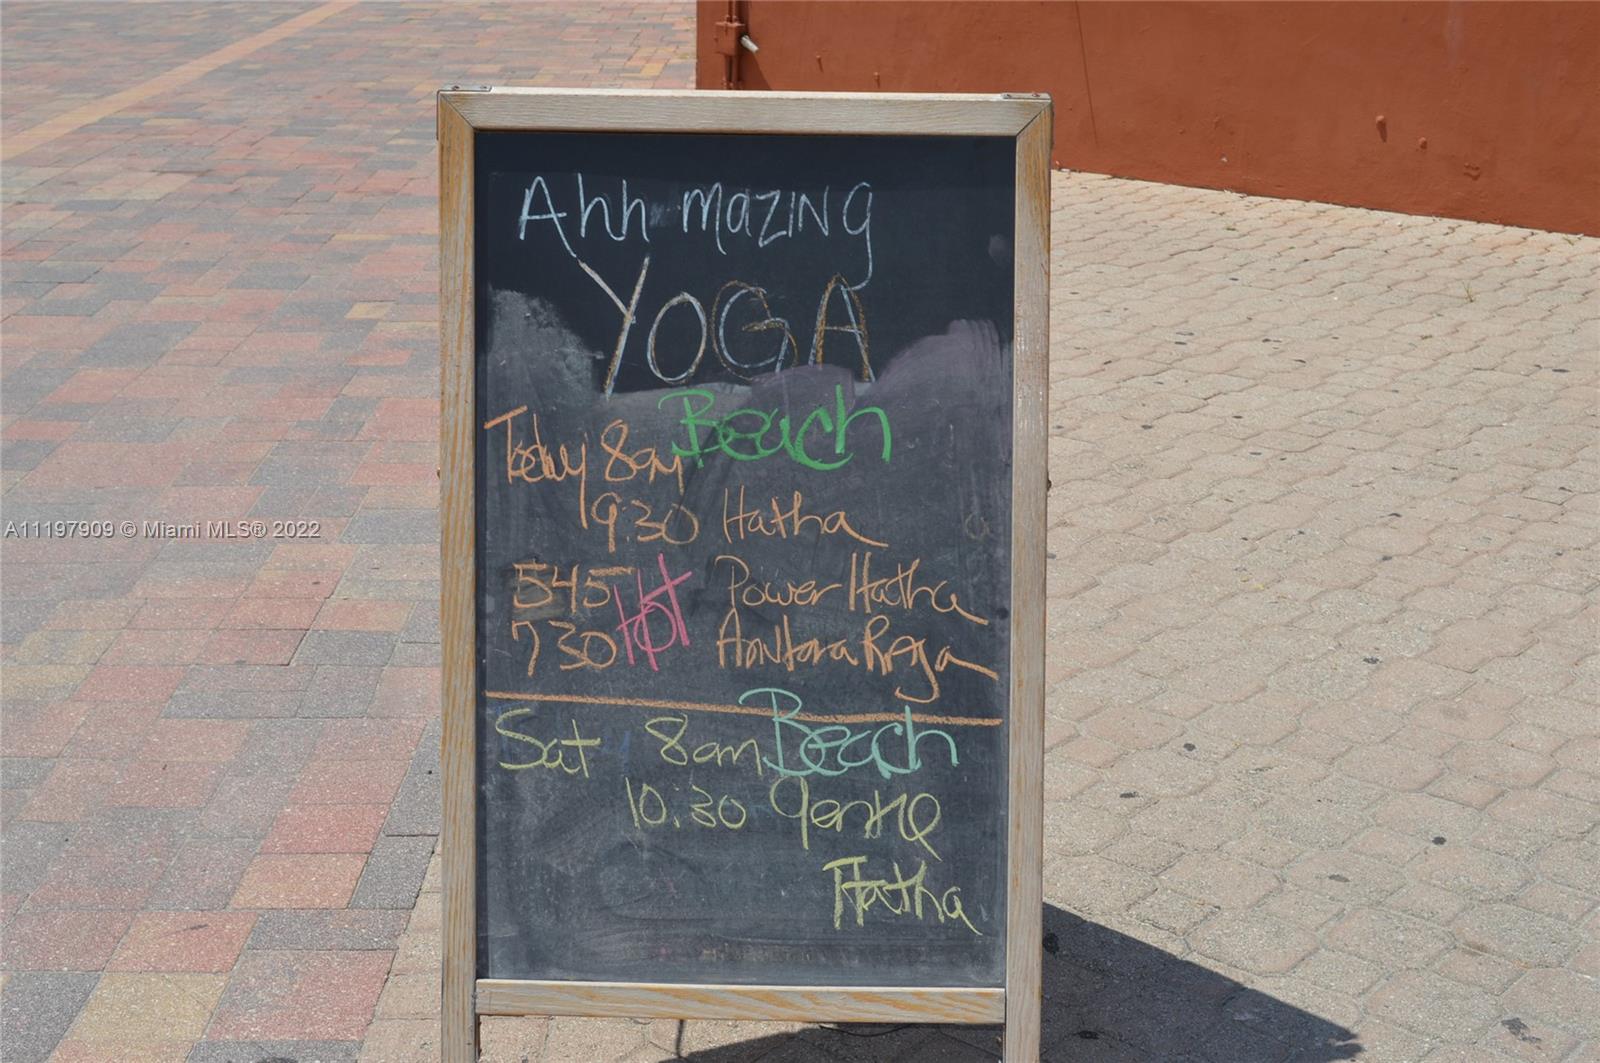 Ahh mazING
YOGA
Today 8am Beach
9:30 Hatha
545 Hot Power Hatha
730 Raja
Sat 8am Beach
10:30 Gentle
Hatha
A11197909 © Miami MLS® 2022